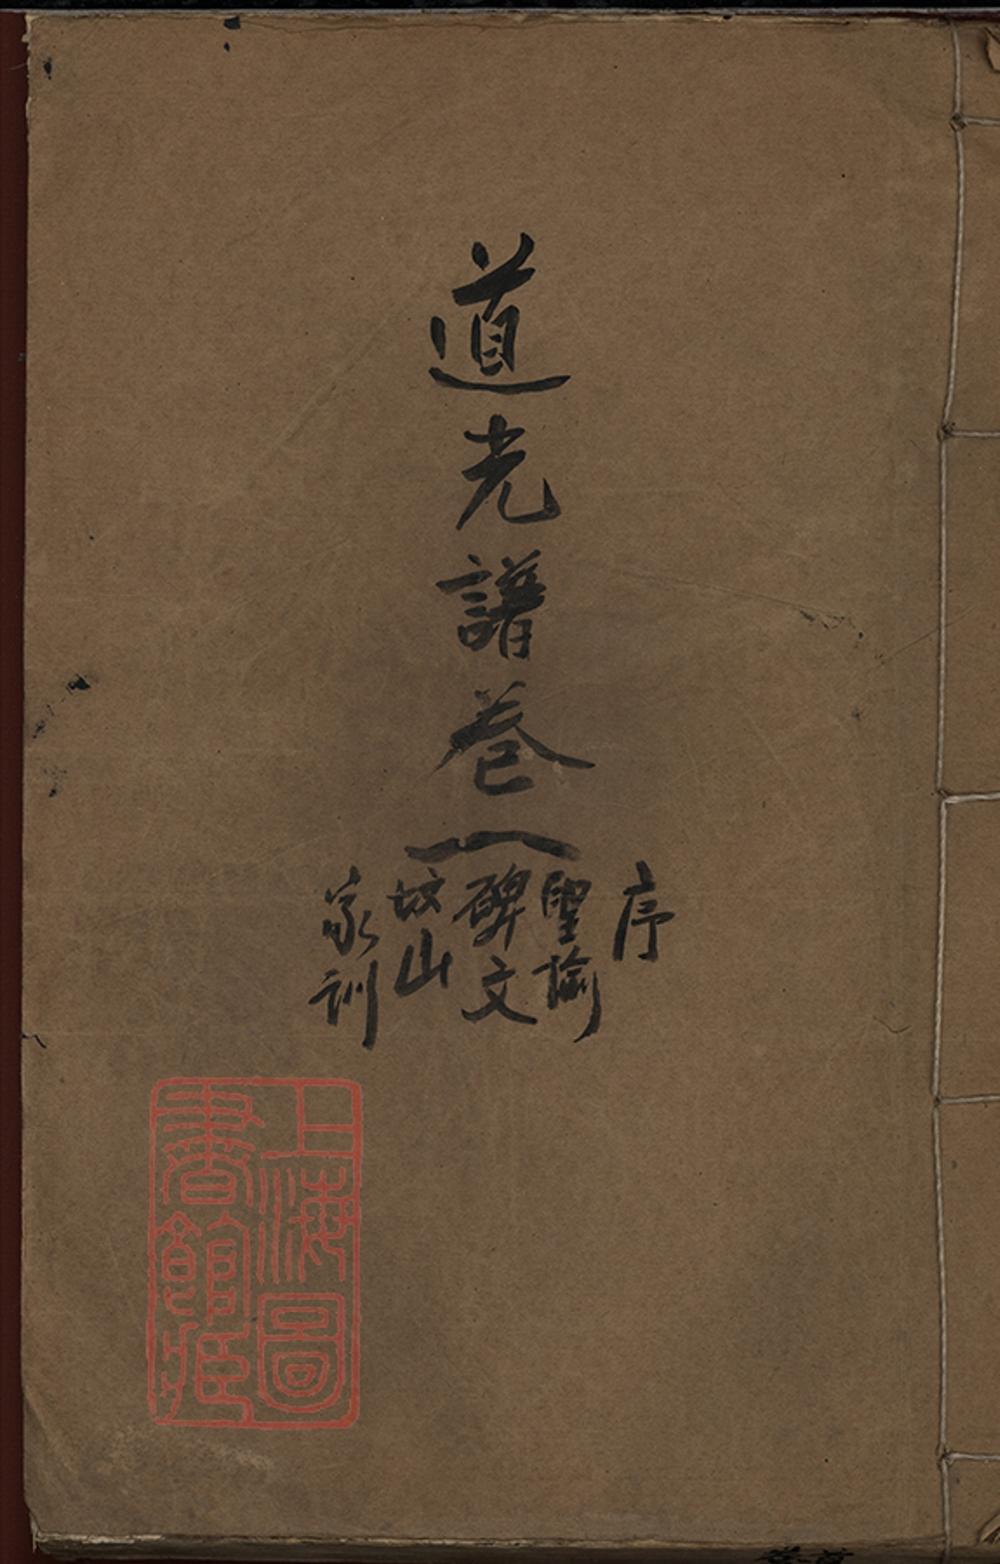 道光譜卷一
序
聖諭
碑文
坟山
家訓
上海圖
書館藏